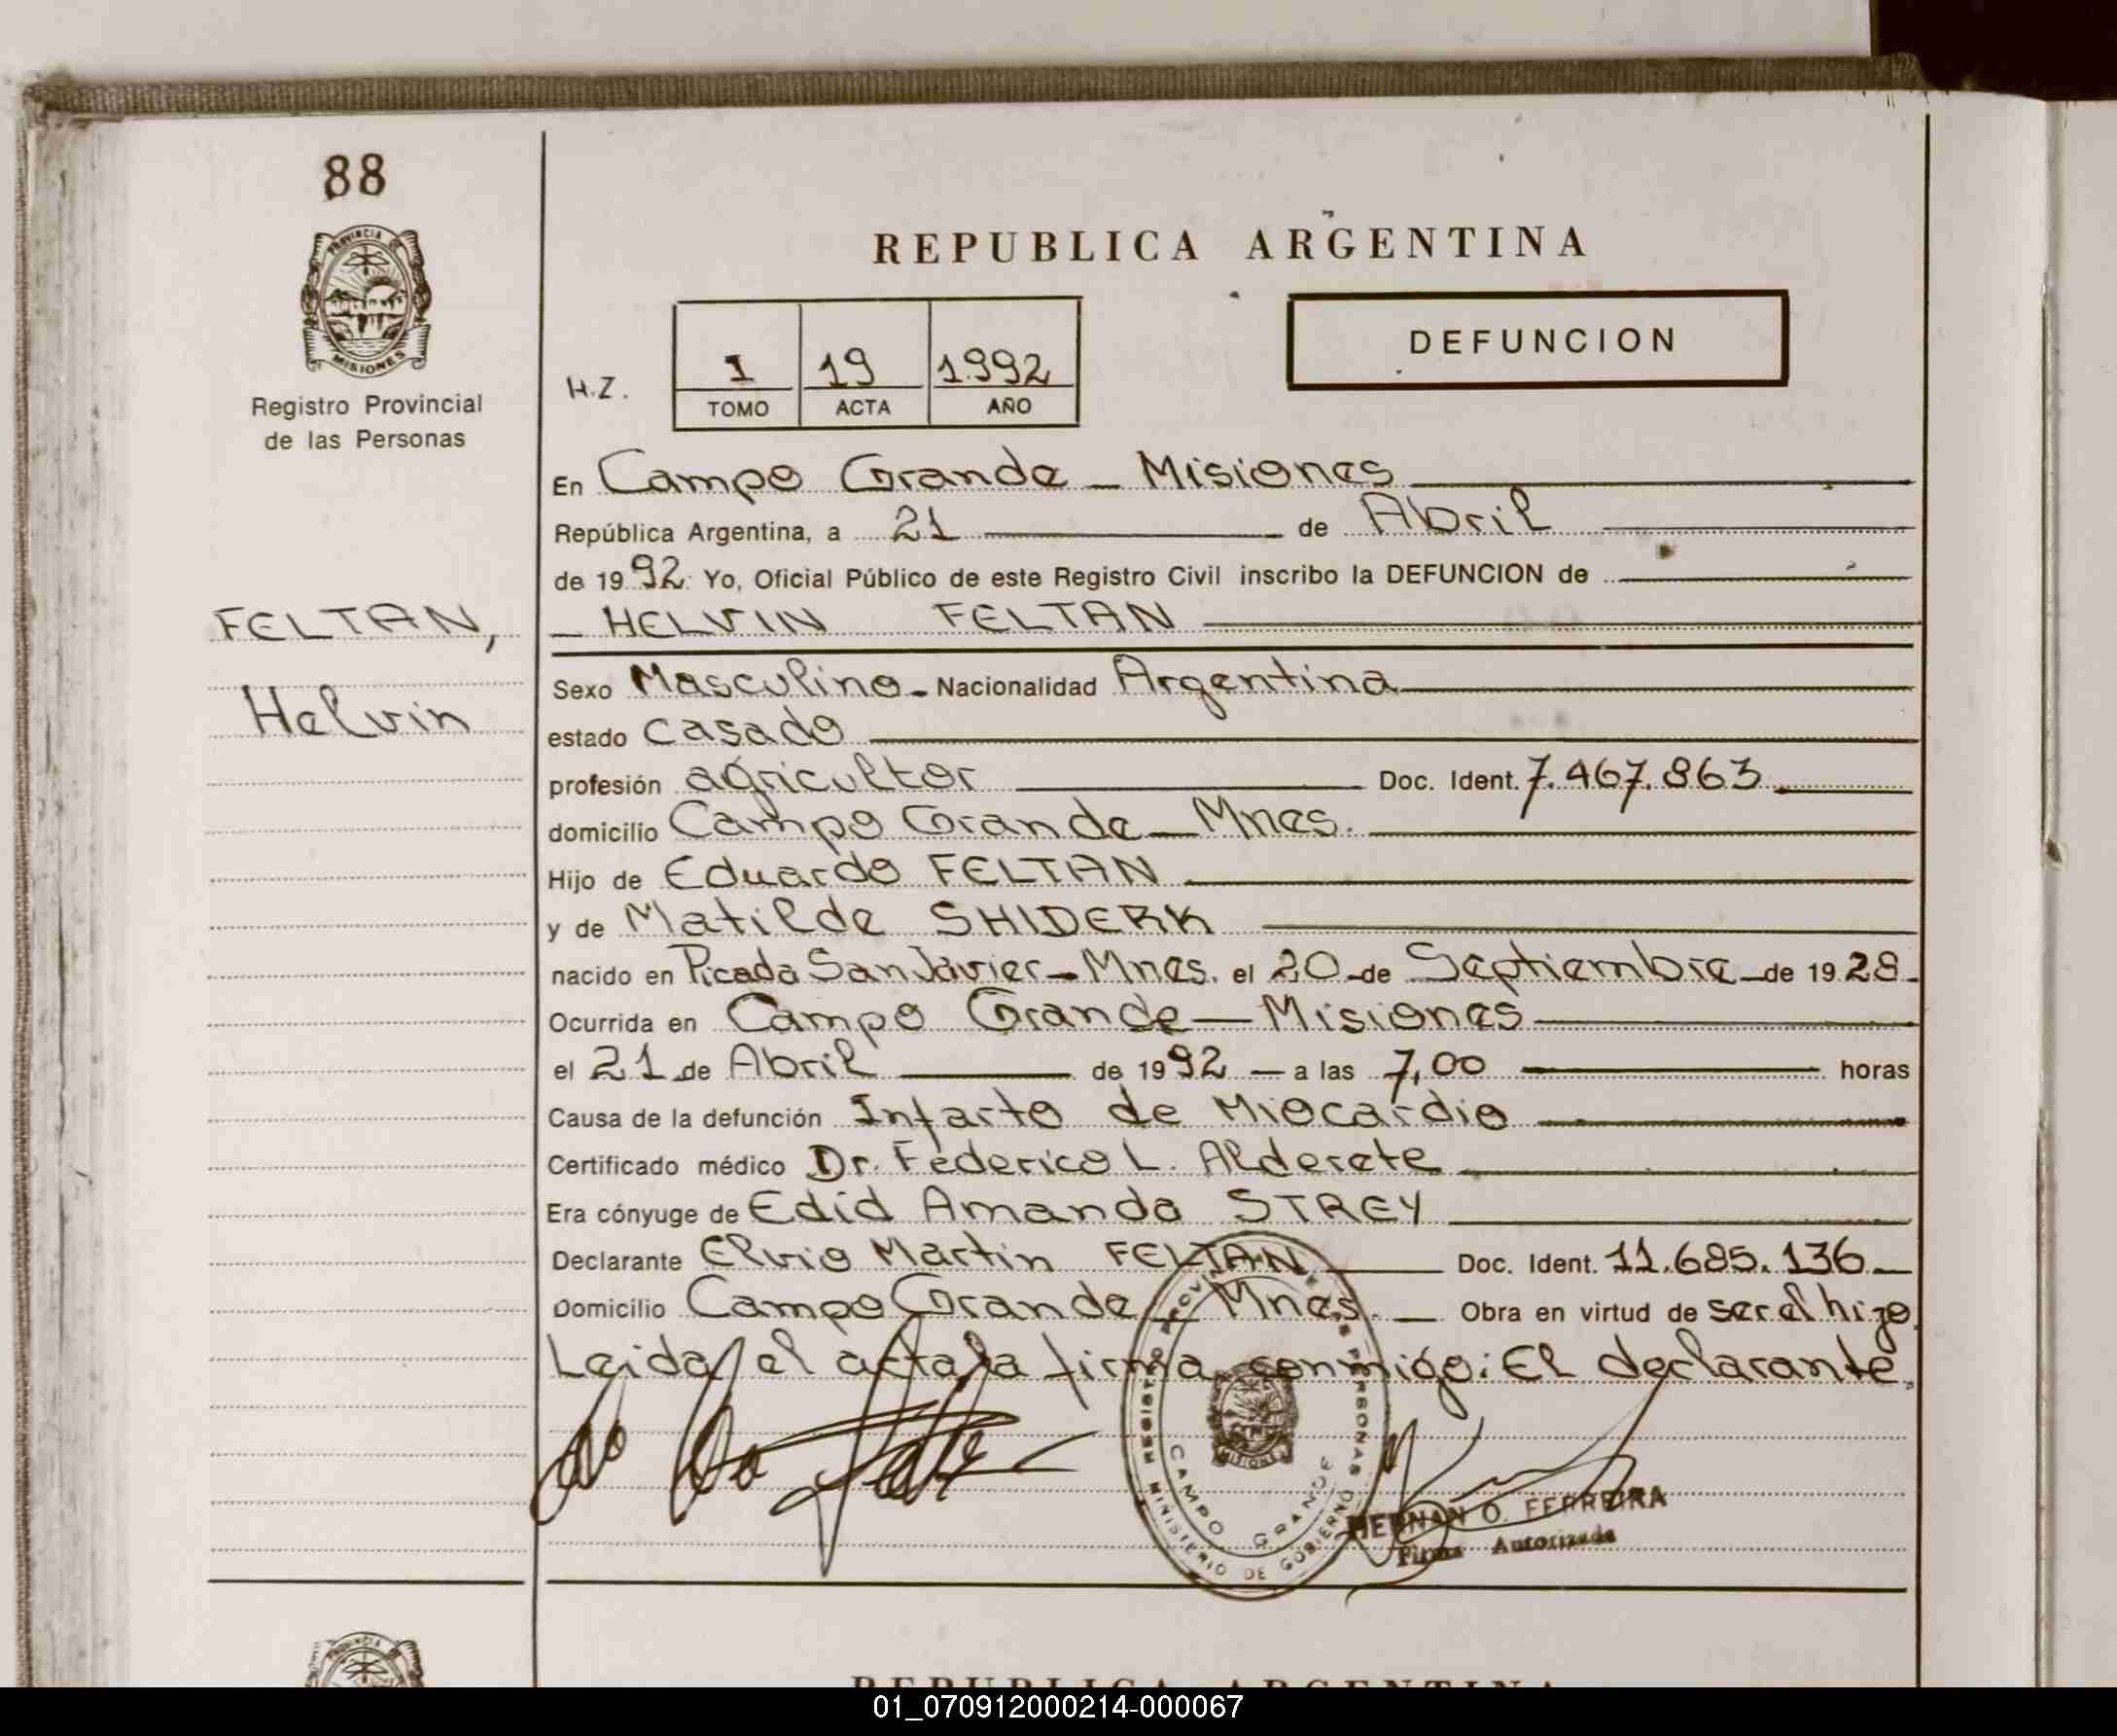 88
PROVINCIA DE
MISIONES
Registro Provincial
de las Personas
FELTAN,
Helvin
REPUBLICA ARGENTINA
DEFUNCION
H.Z.
1 19 1.992
TOMO ACTA AÑO
En Campo Grande - Misiones
República Argentina, a 21 de Abril
de 1992. Yo, Oficial Público de este Registro Civil inscribo la DEFUNCION de
- HELVIN FELTAN
Sexo Masculino - Nacionalidad Argentina
estado casado
profesión agricultor Doc. Ident. 7.467.863
domicilio Campo Grande - Mnes.
Hijo de Eduardo FELTAN
y de Matilde SHIDERK
nacido en Picada San Javier - Mnes. el 20 - de Septiembre - de 1928 -
Ocurrida en Campo Grande - Misiones
el 21 de Abril de 1992 - a las 7,00 horas
Causa de la defunción Infarto de Miocardio
Certificado médico Dr. Federico L. Alderete
Era cónyuge de Edid Amanda STREY
Declarante Elvio Martin FELTAN Doc. Ident. 11.685.136
Domicilio Campo Grande - Mnes. - Obra en virtud de ser el hijo
Leida el acta la firma conmigo: El declarante.
REGISTRO PROVINCIAL DE LAS PERSONAS
CAMPO GRANDE
MINISTERIO DE GOBIERNO
MISIONES
HERNAN O. FERREIRA
Firma Autorizada
PROVINCIA DE
REPUBLICA ARGENTINA
01_070912000214-000067